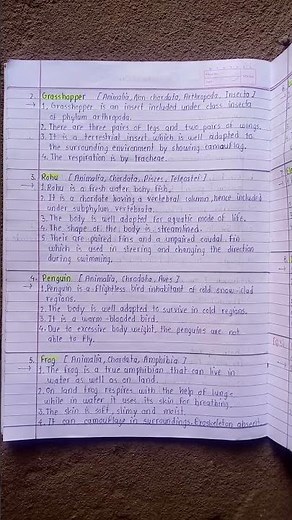 2. Grasshopper [Animalia, Non chordata, Arthropoda, Insecta]
→ 1. Grasshopper is an insect included under class insecta
of phylum arthropoda.
2. There are three pairs of legs and two pairs of wings.
3. It is a terrestrial insect which is well adapted to
the surrounding environment by showing camouflag.
4. The respiration is by tracheae.
3. Rohu [Animalia, Chordata, Pisces, Teleostei]
→ 1. Rohu is a fresh water bony fish.
2. It is a chordate having a vertebral column, hence included
under subphylum vertebrata.
3. The body is well adapted for aquatic mode of life.
4. The shape of the body is streamlined.
5. There are paired fins and a unpaired caudal fin
which is used in steering and changing the direction
during swimming.
4. Penguin [Animalia, Chrodata, Aves]
→ 1. Penguin is a flightless bird inhabitant of cold snow clad
regions.
2. The body is well adapted to survive in cold regions.
3. It is a warm-blooded bird.
4. Due to excessive body weight, the penguins are not
able to fly.
5. Frog [Animalia, Chordata, Amphibia]
→ 1. The frog is a true amphibian that can live in
water as well as on land.
2. On land frog respires with the help of lungs
while in water it uses its skin for breathing.
3. The skin is soft, slimy and moist.
4. It can camouflage in surroundings. Exoskeleton absent.